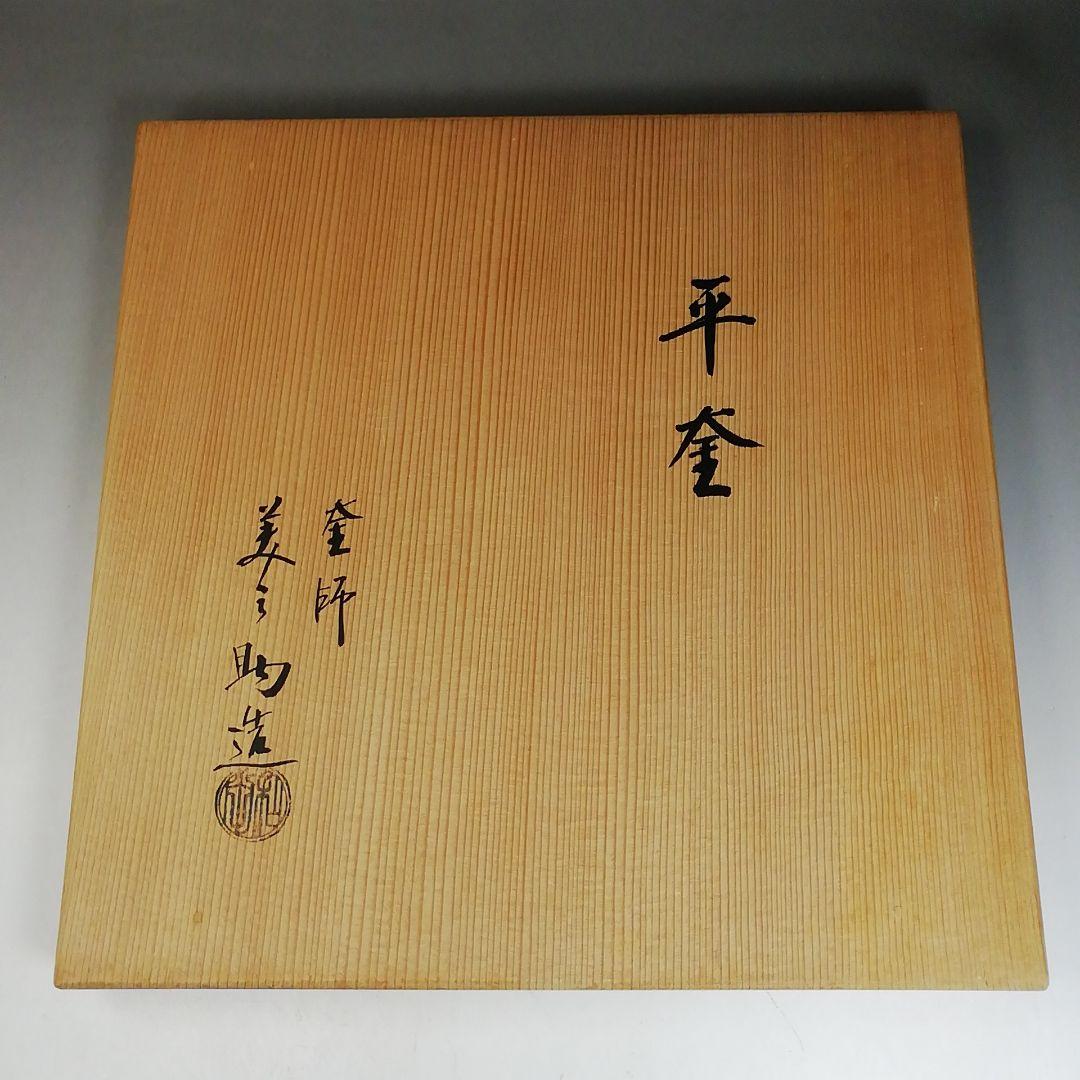 平釜
釜師
美之助造